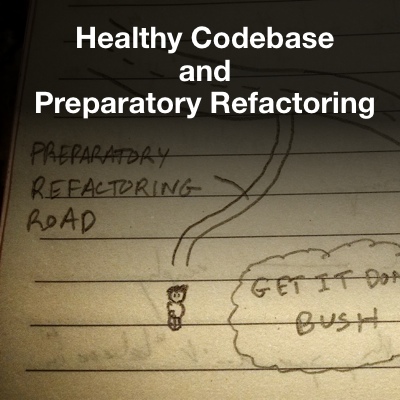 Healthy Codebase
and
Preparatory Refactoring
PREPARATORY
REFACTORING
ROAD
GET IT DON
BUSH